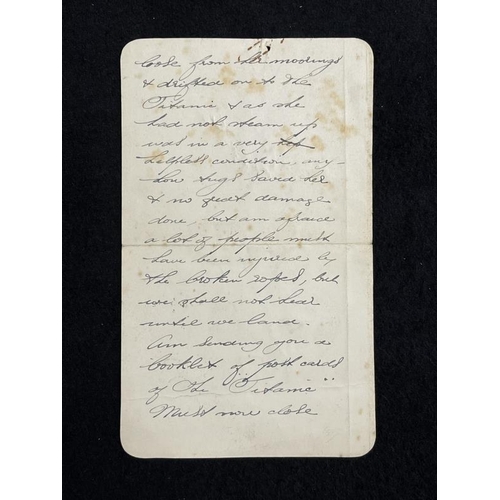 loose from her moorings
& drifted on to the
Titanic & as she
had not steam up
was in a very hep
helpless condition any-
how tugs saved her
& no great damage
done, but am afraid
a lot of people must
have been injured by
the broken ropes, but
we shall not hear
until we land.
Am sending you a
booklet of post cards
of The "Titanic"
Must now close